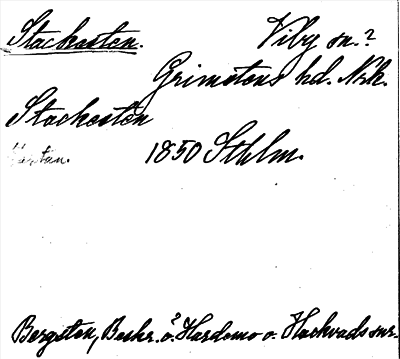 Stackesten. Viby sn.?
Grimstens hd. Nrk.
Stackesten
1850 Sthlm.
Bergsten, Beskr. ö. Hardemo o. Hackvads snr.